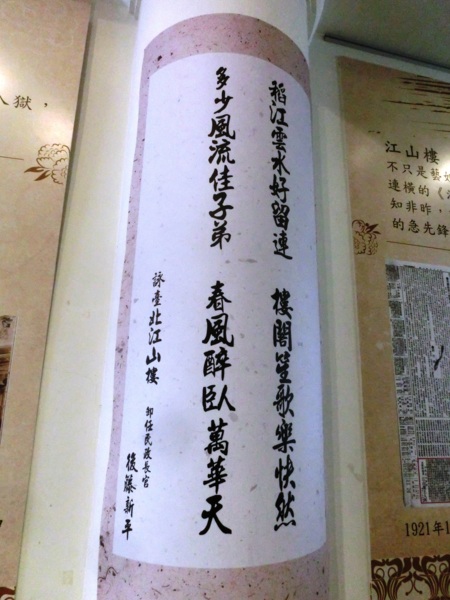 入獄，
稻江雲水好留連 樓閣笙歌樂快然
多少風流佳子弟 春風醉臥萬華天
詠臺北江山樓 卸任民政長官 後藤新平
江山樓
不只是藝
連橫的《
知非昨，
的急先鋒
1921年1